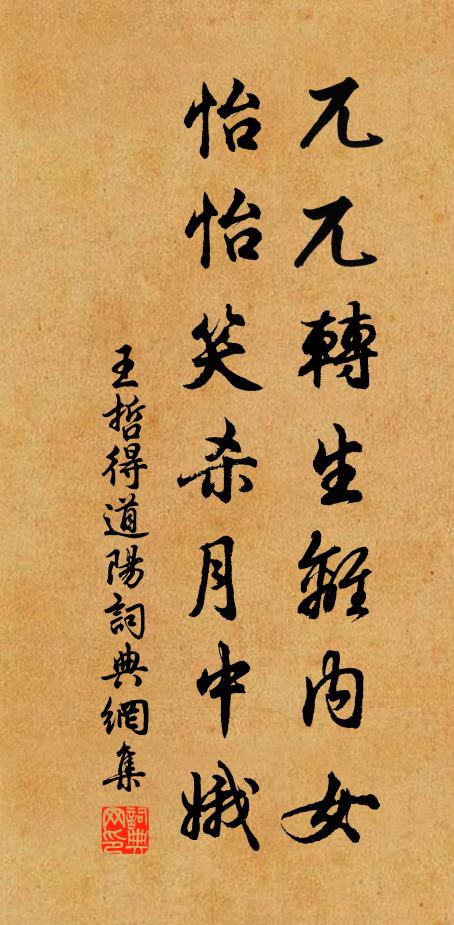 兀兀轉生離内女
怡怡笑杀月中娥
王哲得道陽詞典網集
詞典
网印